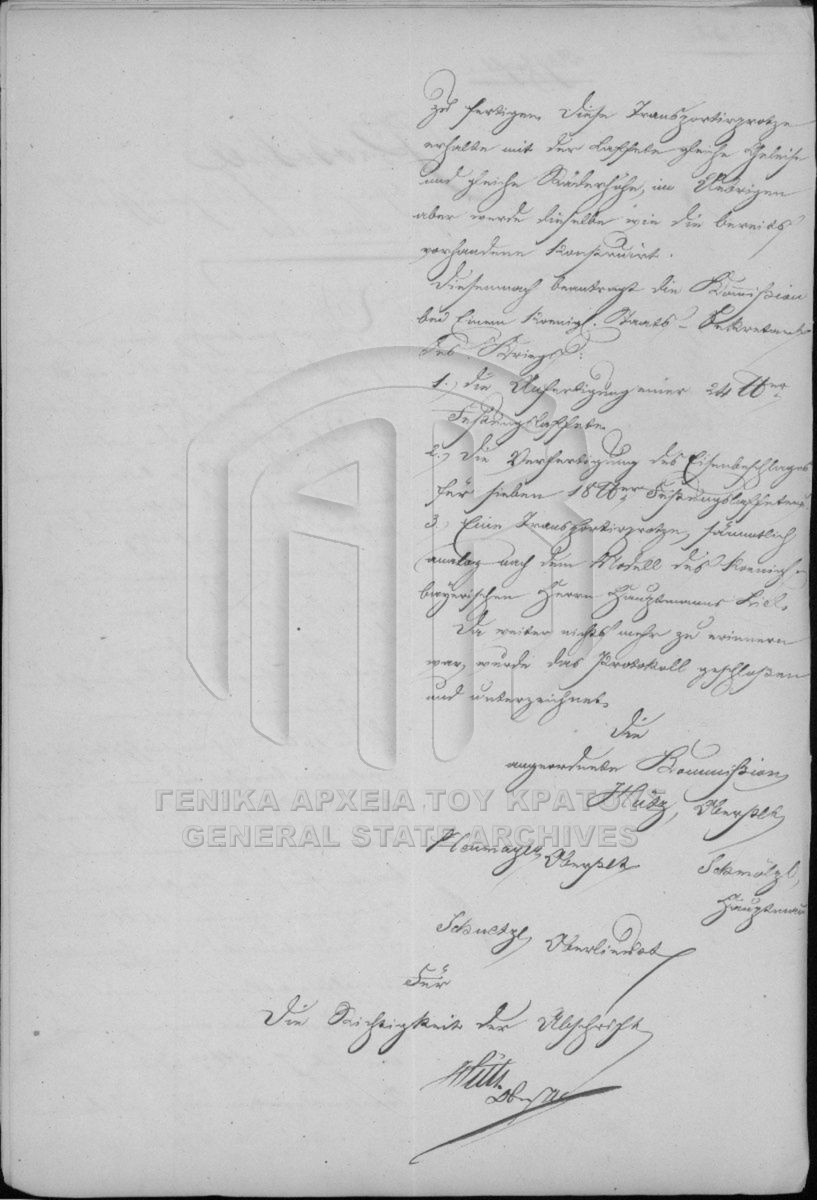 zu fertigen. Diese Transportirprotze
erhalte mit der Laffete gleiche Geleise
und gleiche Räderhöhe, im Uebrigen
aber werde dieselbe wie die bereits
vorhandene konstruirt.
Diesemnach beantragt die Kommißion
bei Einem Koenigl. Staats-Sekretariate
des Kriegs:
1.) die Anfertigung einer 24 ℔er
Festungslaffete.
2.) Die Verfertigung des Eisenbeschlages
für sieben 18 ℔er Festungslaffeten.
3.) Eine Transportirprotze, sämmtlich
analog nach dem Modell des Koenigl.
bayerischen Herrn Hauptmanns
Da weiter nichts mehr zu erinnern
war, wurde das Protokoll geschloßen
und unterzeichnet.
Die
angeordnete Kommißion
Hütz, Oberstlt
Oberstlt Schmölzl,
Hauptmann
Schnetzl, Oberlieutnt
Für
Die Richtigkeit der Abschrift
Hütz
Oberstlt
ΓΕΝΙΚΑ ΑΡΧΕΙΑ ΤΟΥ ΚΡΑΤΟΥΣ
GENERAL STATE ARCHIVES